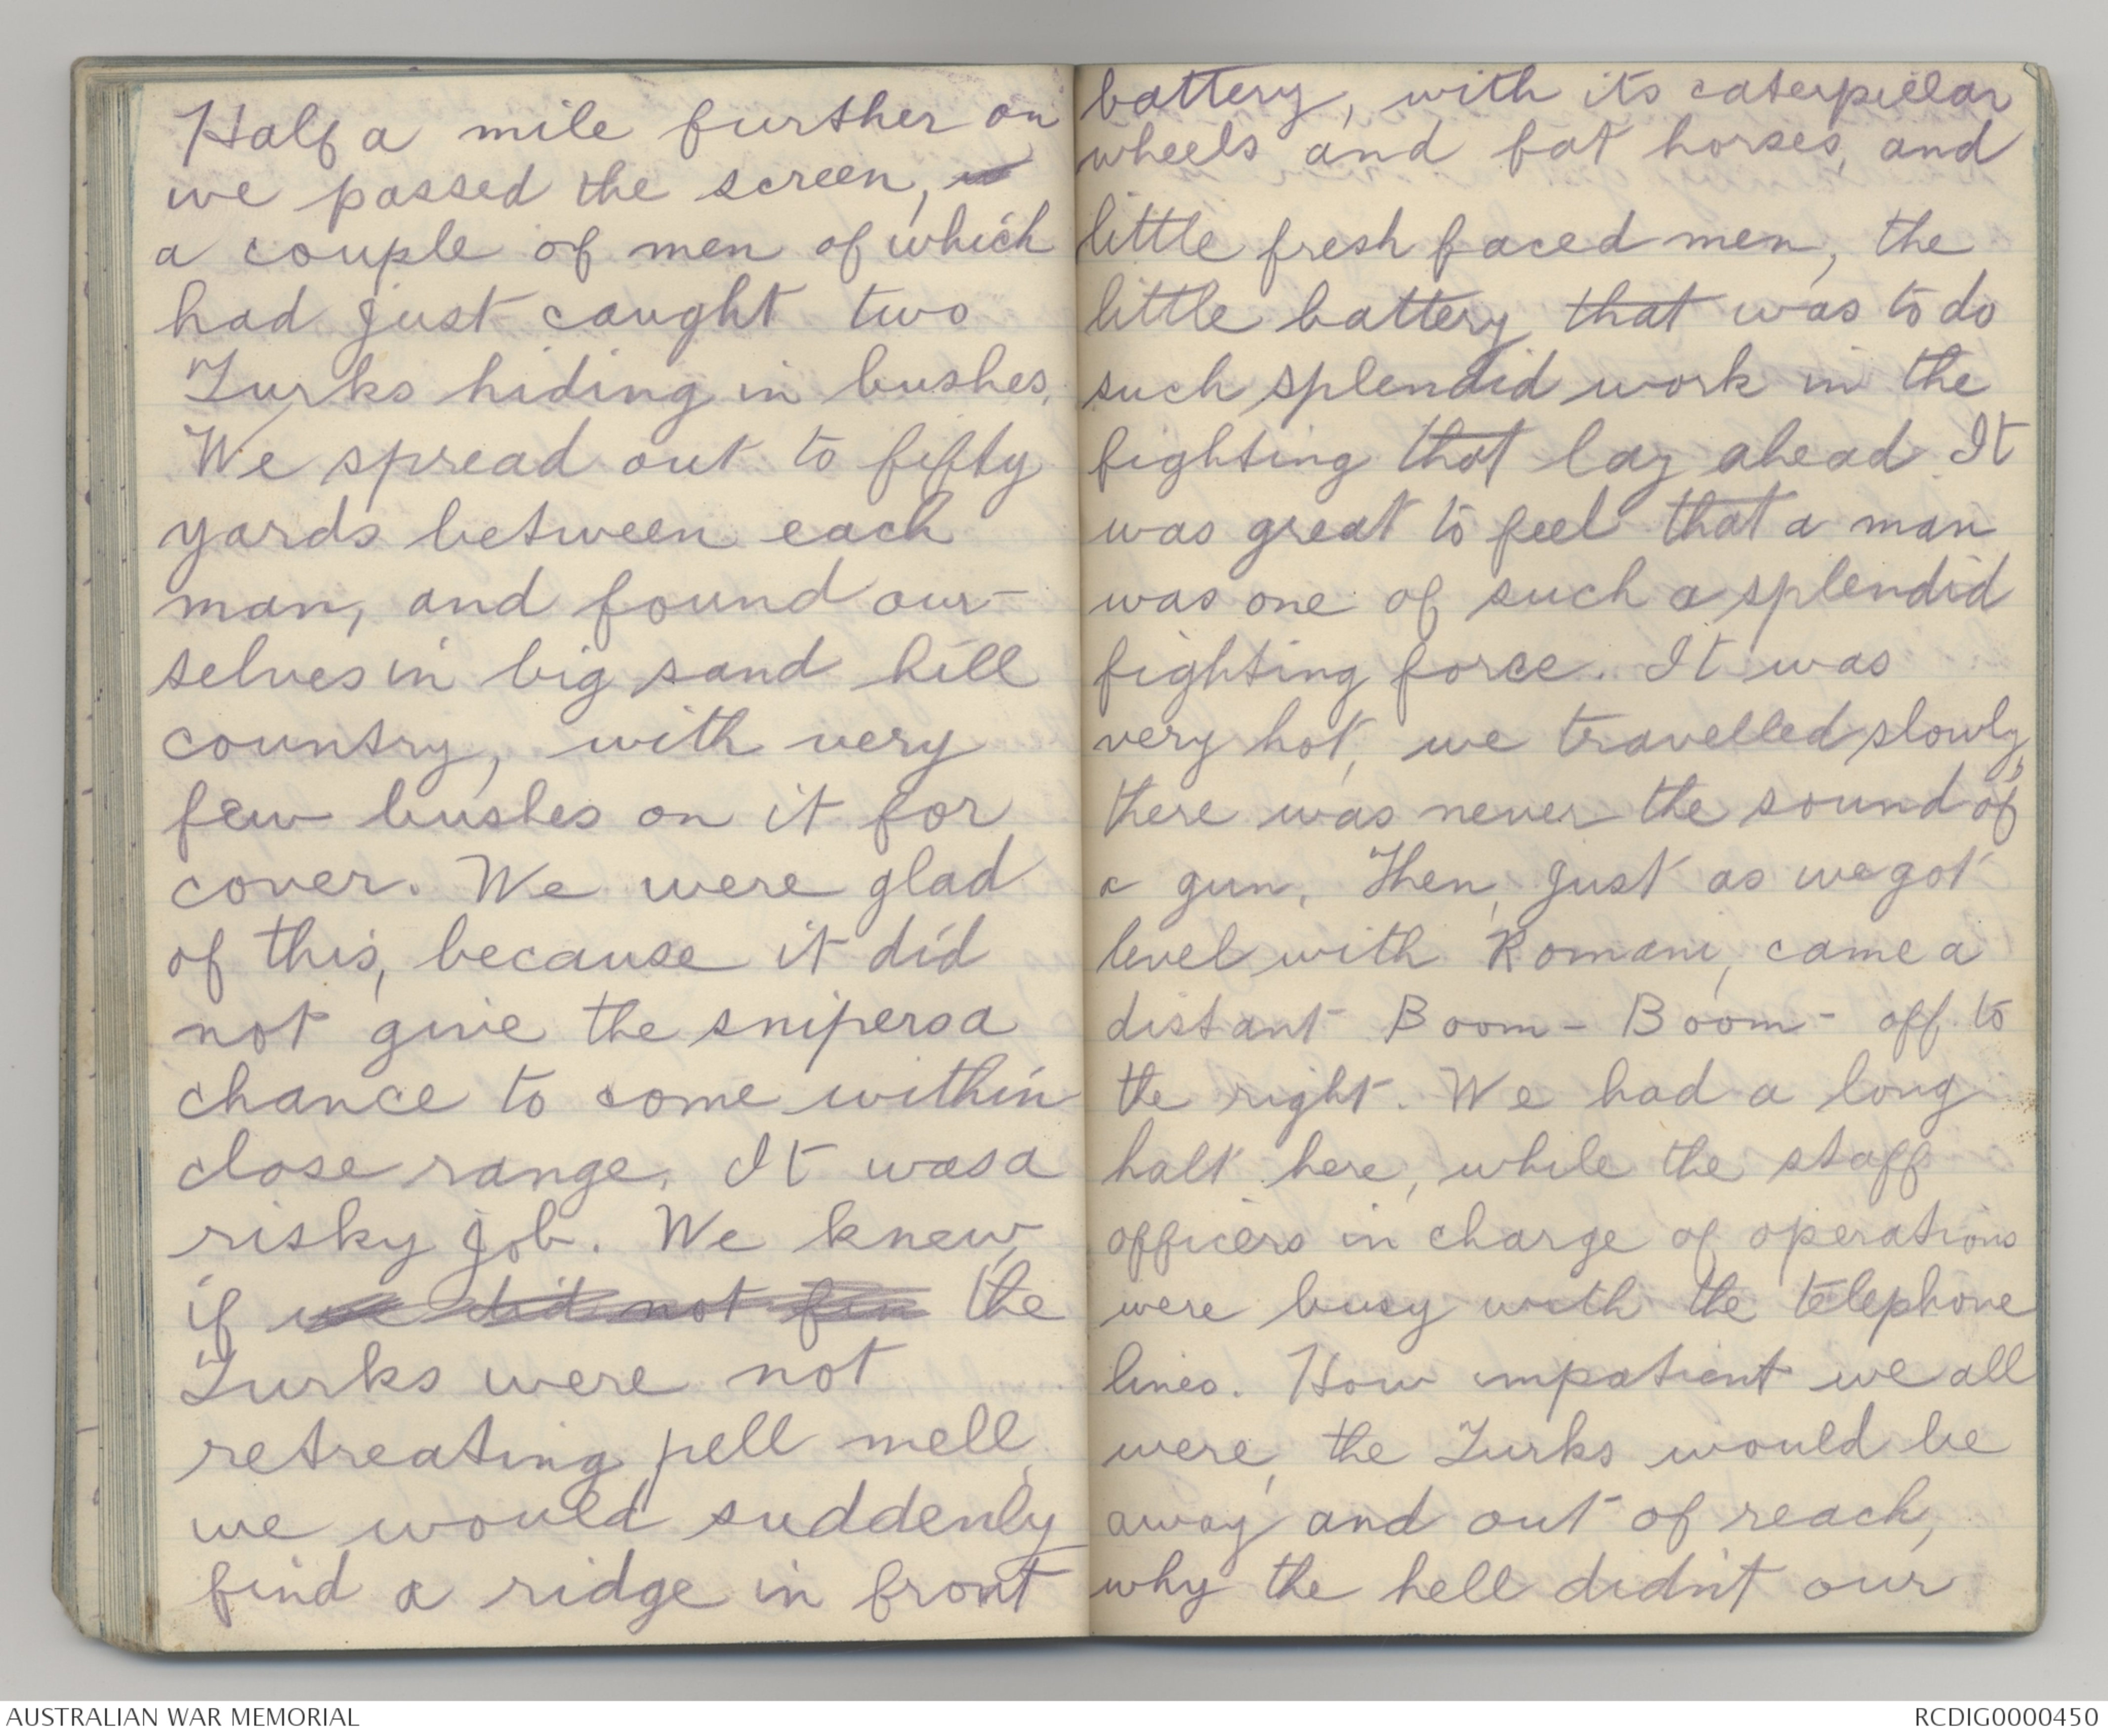 Half a mile further on
we passed the screen, w
a couple of men of which
had just caught two
Turks hiding in bushes.
We spread out to fifty
yards between each
man, and found our-
selves in big sand hill
country, with very
few bushes on it for
cover. We were glad
of this, because it did
not give the snipers a
chance to come within
close range. It was a
risky job. We knew,
if we did not fin the
Turks were not
retreating pell mell,
we would suddenly
find a ridge in front
battery, with its caterpillar
wheels and fat horses, and
little fresh faced men, the
little battery that was to do
such splendid work in the
fighting that lay ahead It
was great to feel that a man
was one of such a splendid
fighting force. It was
very hot, we travelled slowly,
there was never the sound of
a gun. Then, just as we got
level with Romani, came a
distant Boom - Boom - off to
the right. We had a long
halt here, while the staff
officers in charge of operations
were busy with the telephone
lines. How impatient we all
were, the Turks would be
away and out of reach,
why the hell didn't our
AUSTRALIAN WAR MEMORIAL
RCDIG0000450